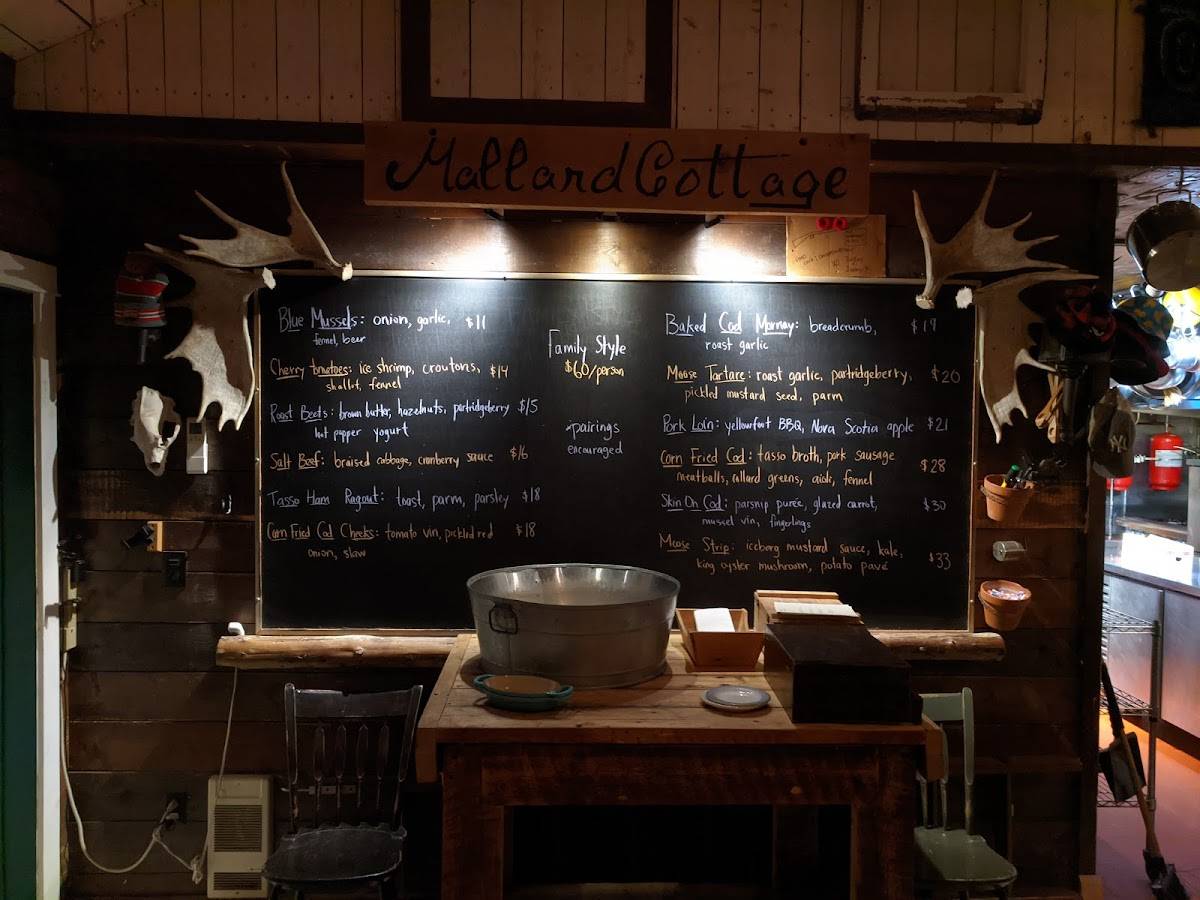 Mallard Cottage
Blue Mussels: onion, garlic, $11
fennel, beer
Cherry tomatoes: ice shrimp, croutons, $14
shallot, fennel
Roast Beets: brown butter, hazelnuts, partridgeberry $15
hot pepper yogurt
Salt Beef: braised cabbage, cranberry sauce $16
Tasso Ham Ragout: toast, parm, parsley $18
Corn Fried Cod Cheeks: tomato vin, pickled red $18
onion, slaw
Family Style
$60/person
*pairings
encouraged
Baked Cod Mornay: breadcrumb, $19
roast garlic
Moose Tartare: roast garlic, partridgeberry, $20
pickled mustard seed, parm
Pork Loin: yellowfoot BBQ, Nova Scotia apple $21
Corn Fried Cod: tasso broth, pork sausage $28
meatballs, collard greens, aioli, fennel
Skin On Cod: parsnip purée, glazed carrot, $30
mussel vin, fingerlings
Moose Strip: iceberg mustard sauce, kale, $33
king oyster mushroom, potato pavé